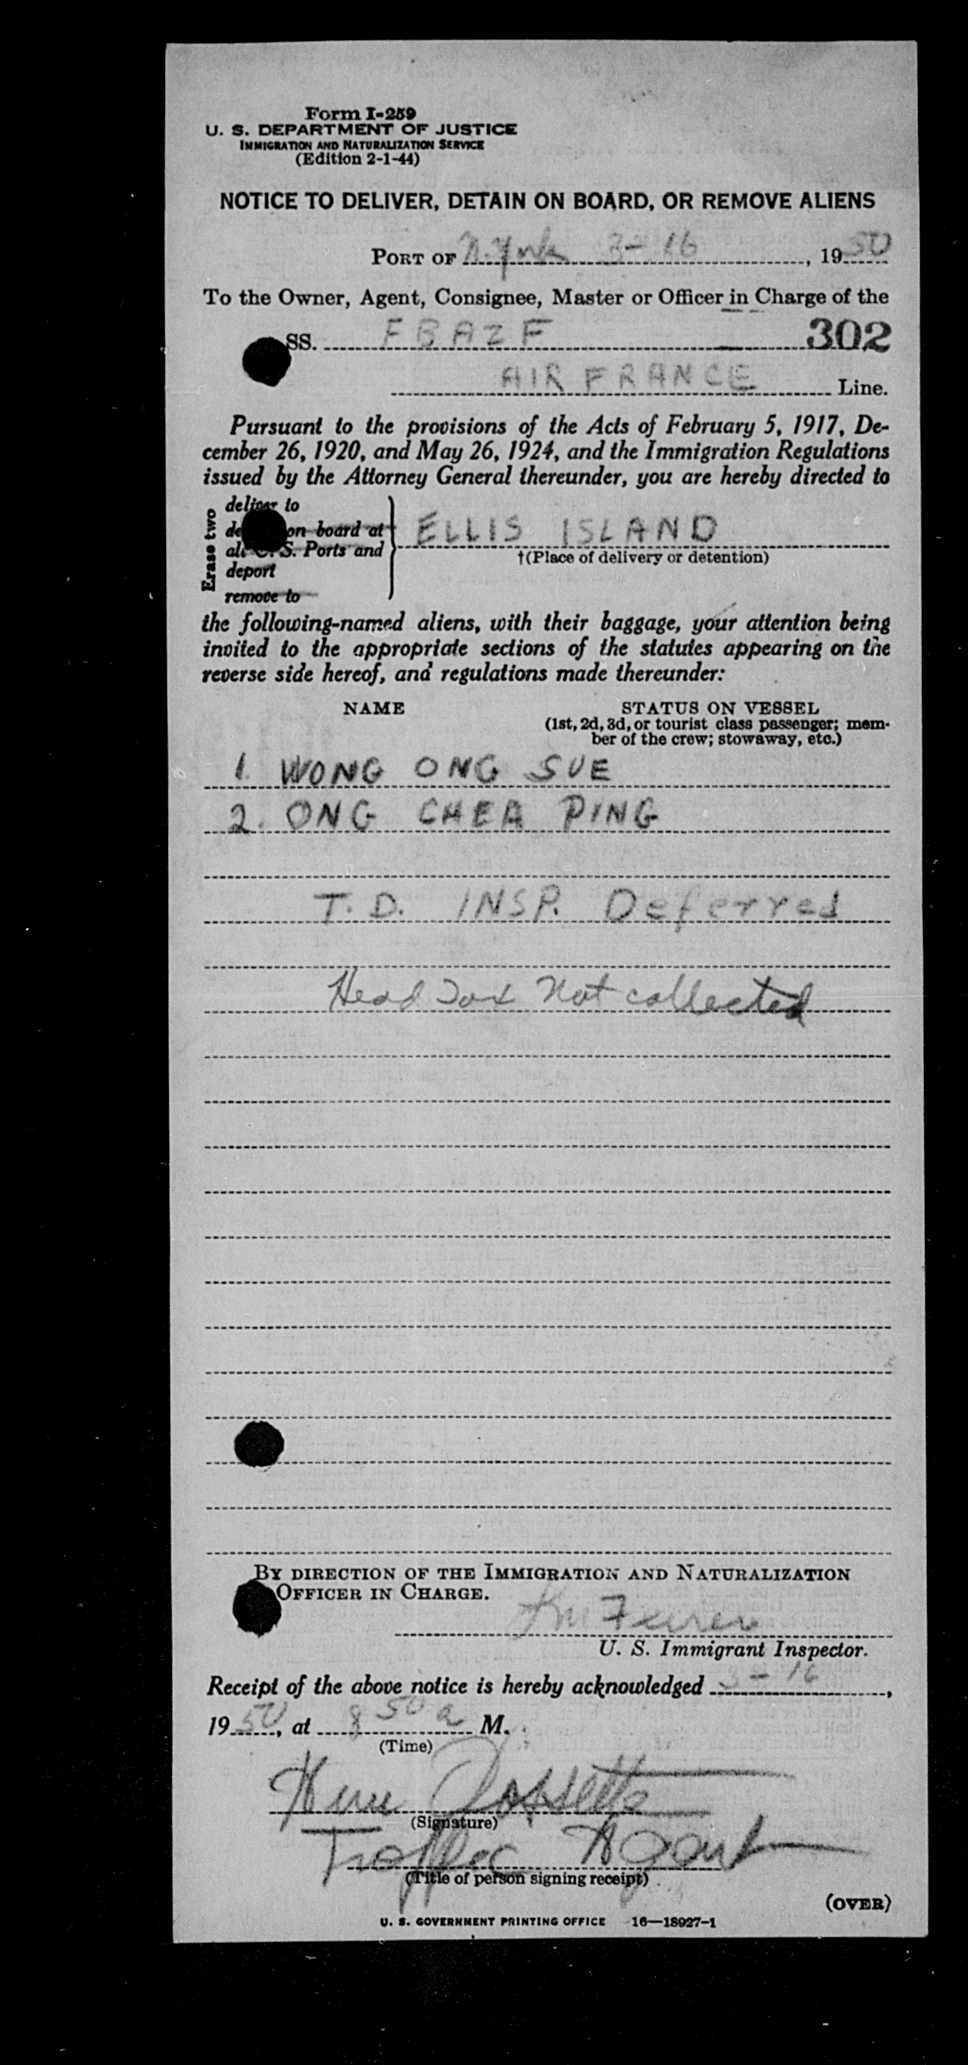 Form I-259
U. S. DEPARTMENT OF JUSTICE
IMMIGRATION AND NATURALIZATION SERVICE
(Edition 2-1-44)
NOTICE TO DELIVER, DETAIN ON BOARD, OR REMOVE ALIENS
PORT OF N. York 3-16, 1950
To the Owner, Agent, Consignee, Master or Officer in Charge of the
SS. FBAZF 302
AIR FRANCE Line.
Pursuant to the provisions of the Acts of February 5, 1917, De-
cember 26, 1920, and May 26, 1924, and the Immigration Regulations
issued by the Attorney General thereunder, you are hereby directed to
Erase two
deliver to
on board at
U. S. Ports and
deport
remove to
ELLIS ISLAND
†(Place of delivery or detention)
the following-named aliens, with their baggage, your attention being
invited to the appropriate sections of the statutes appearing on the
reverse side hereof, and regulations made thereunder:
NAME STATUS ON VESSEL
(1st, 2d, 3d, or tourist class passenger; mem-
ber of the crew; stowaway, etc.)
1. WONG ONG SUE
2. ONG CHEA PING
T. D. INSP. Deferred
Head Tax Not collected
BY DIRECTION OF THE IMMIGRATION AND NATURALIZATION
OFFICER IN CHARGE.
U. S. Immigrant Inspector.
Receipt of the above notice is hereby acknowledged 3-16,
1950, at 8 50 a M.
(Time)
(Signature)
Traffic Agent
(Title of person signing receipt)
(OVER)
U. S. GOVERNMENT PRINTING OFFICE 16—18927-1